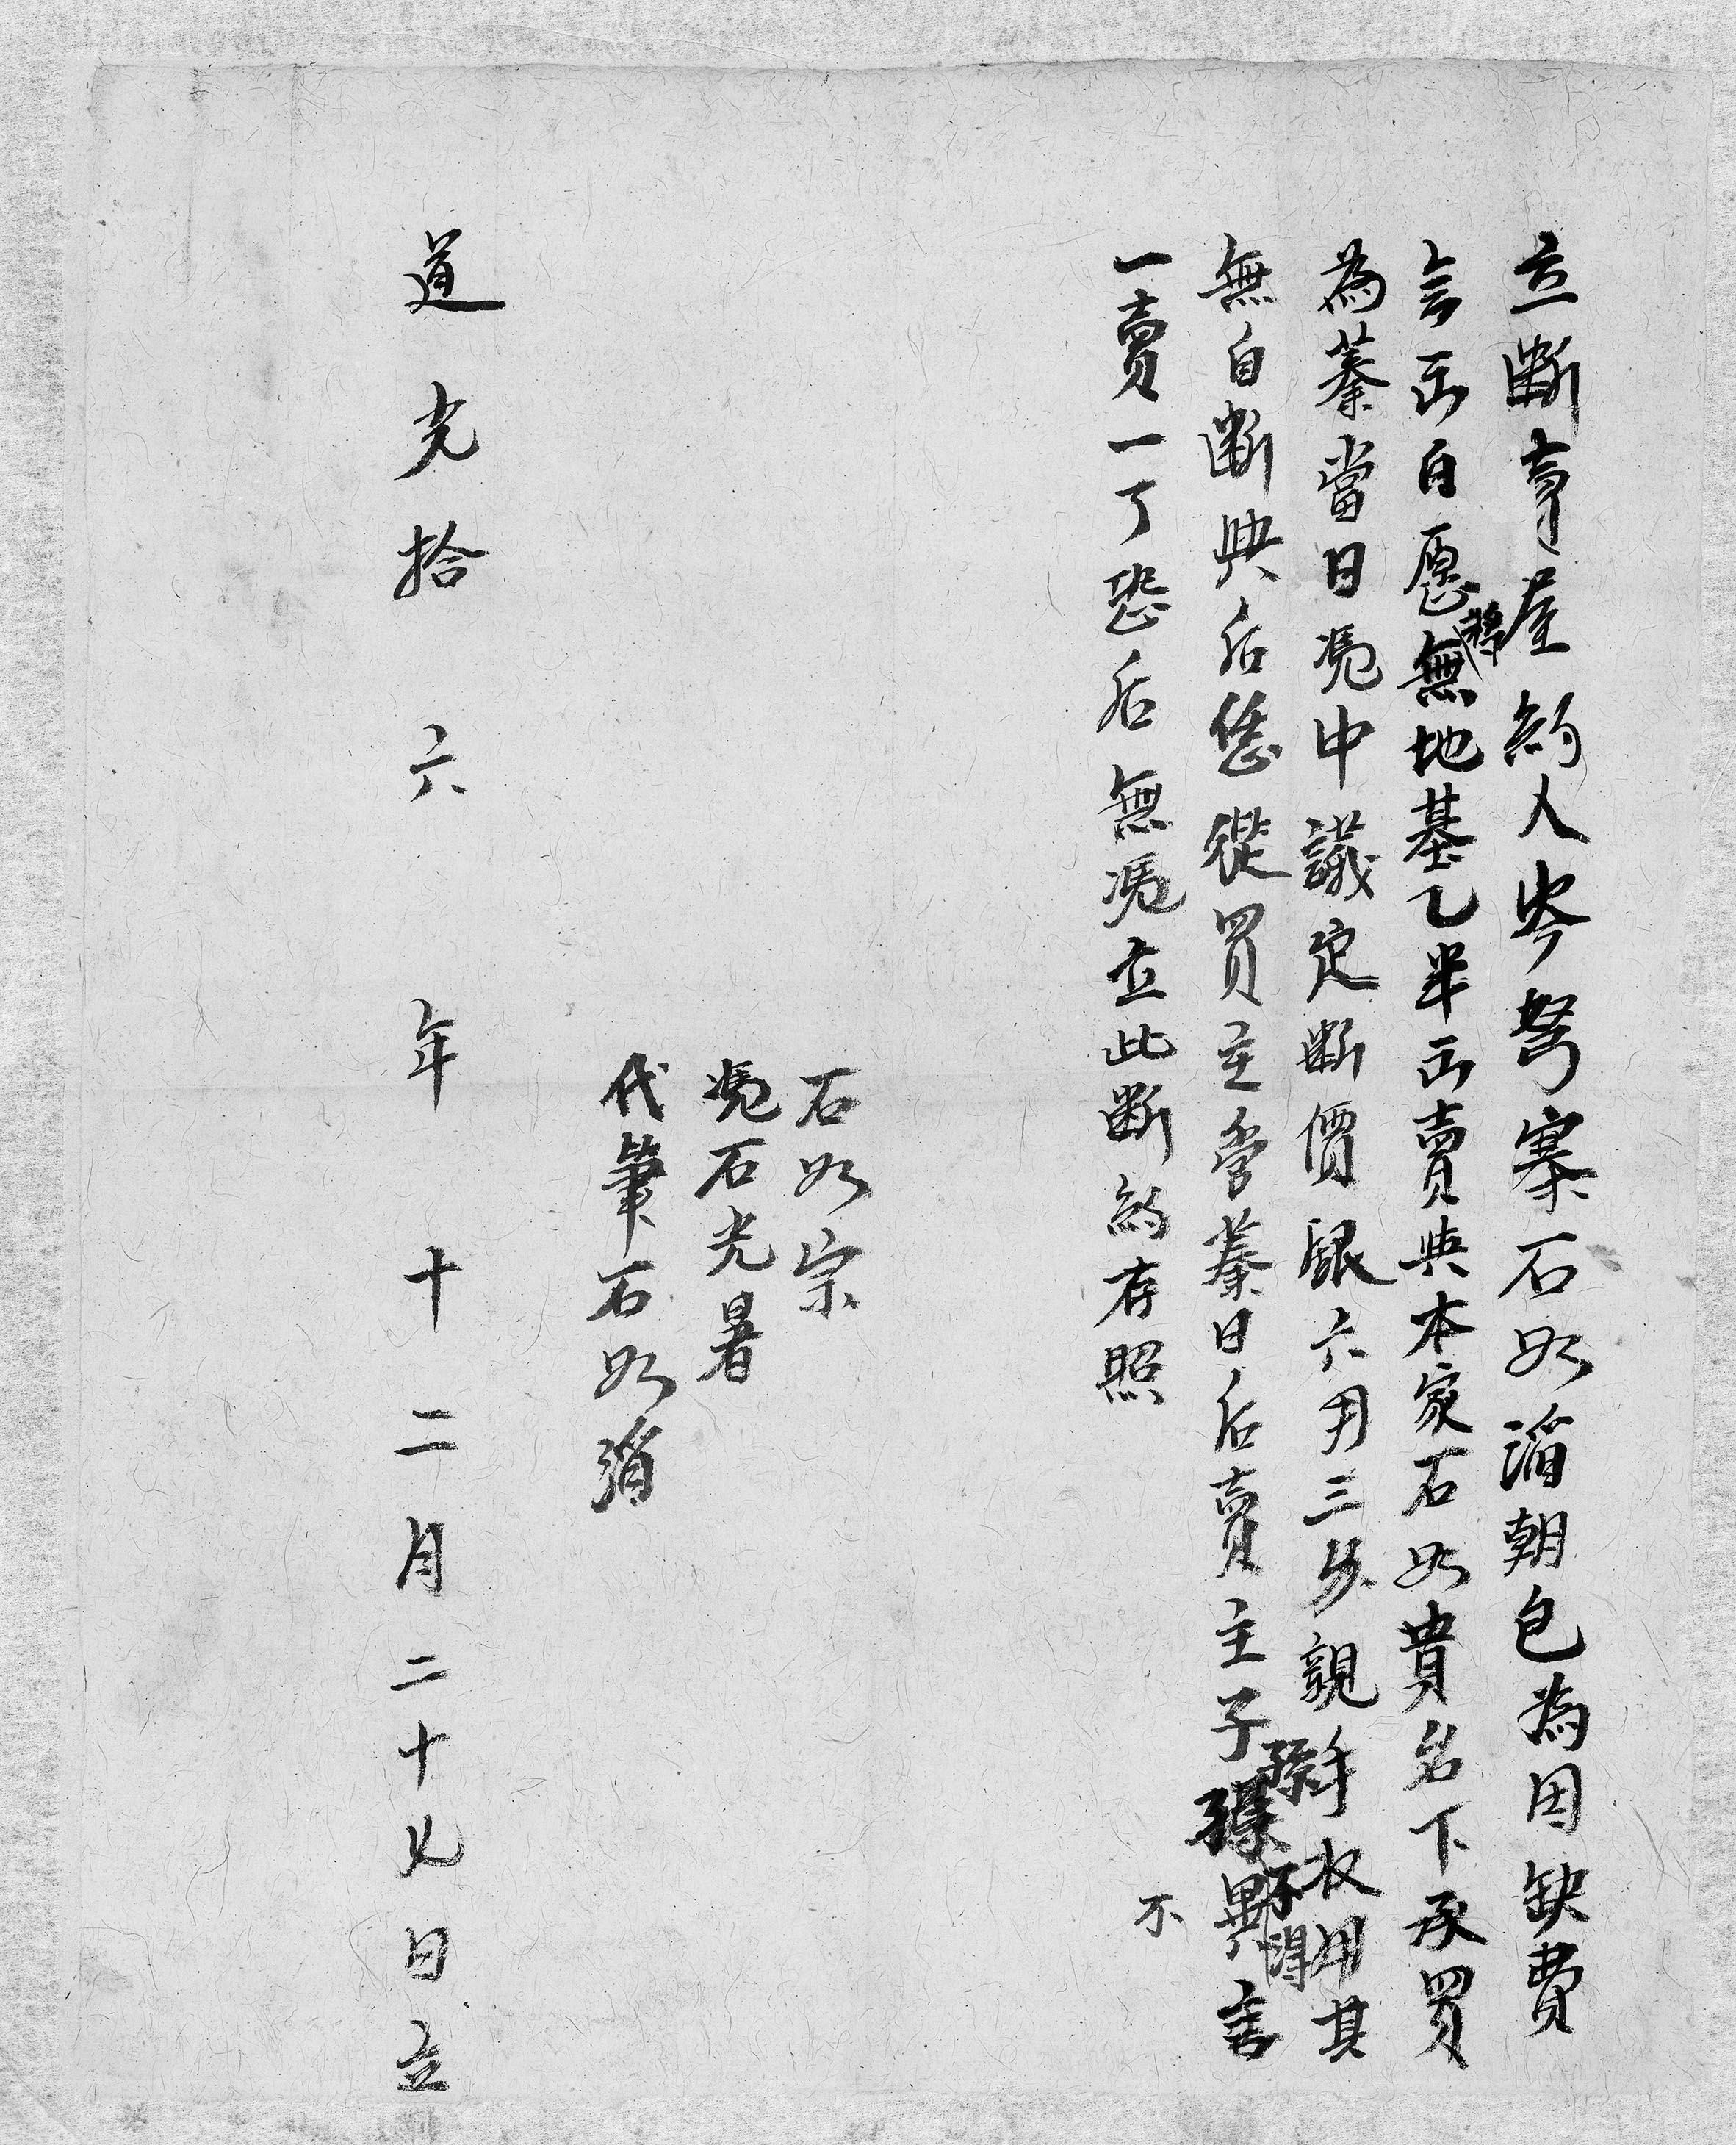 立斷賣屋約人岑弩寨石如淄朝包為因缺費
言出自愿將無地基乙半出賣與本家石如貴名下承買
為業當日凴中議定斷價銀六用三分親手收用其
無自斷與后恁從買主管業日后賣主子孫不得異言
一賣一了恐后無凴立此斷約存照
不
石如宗
凴石光暑
代筆石如滔
道光拾六年十二月二十乂日立